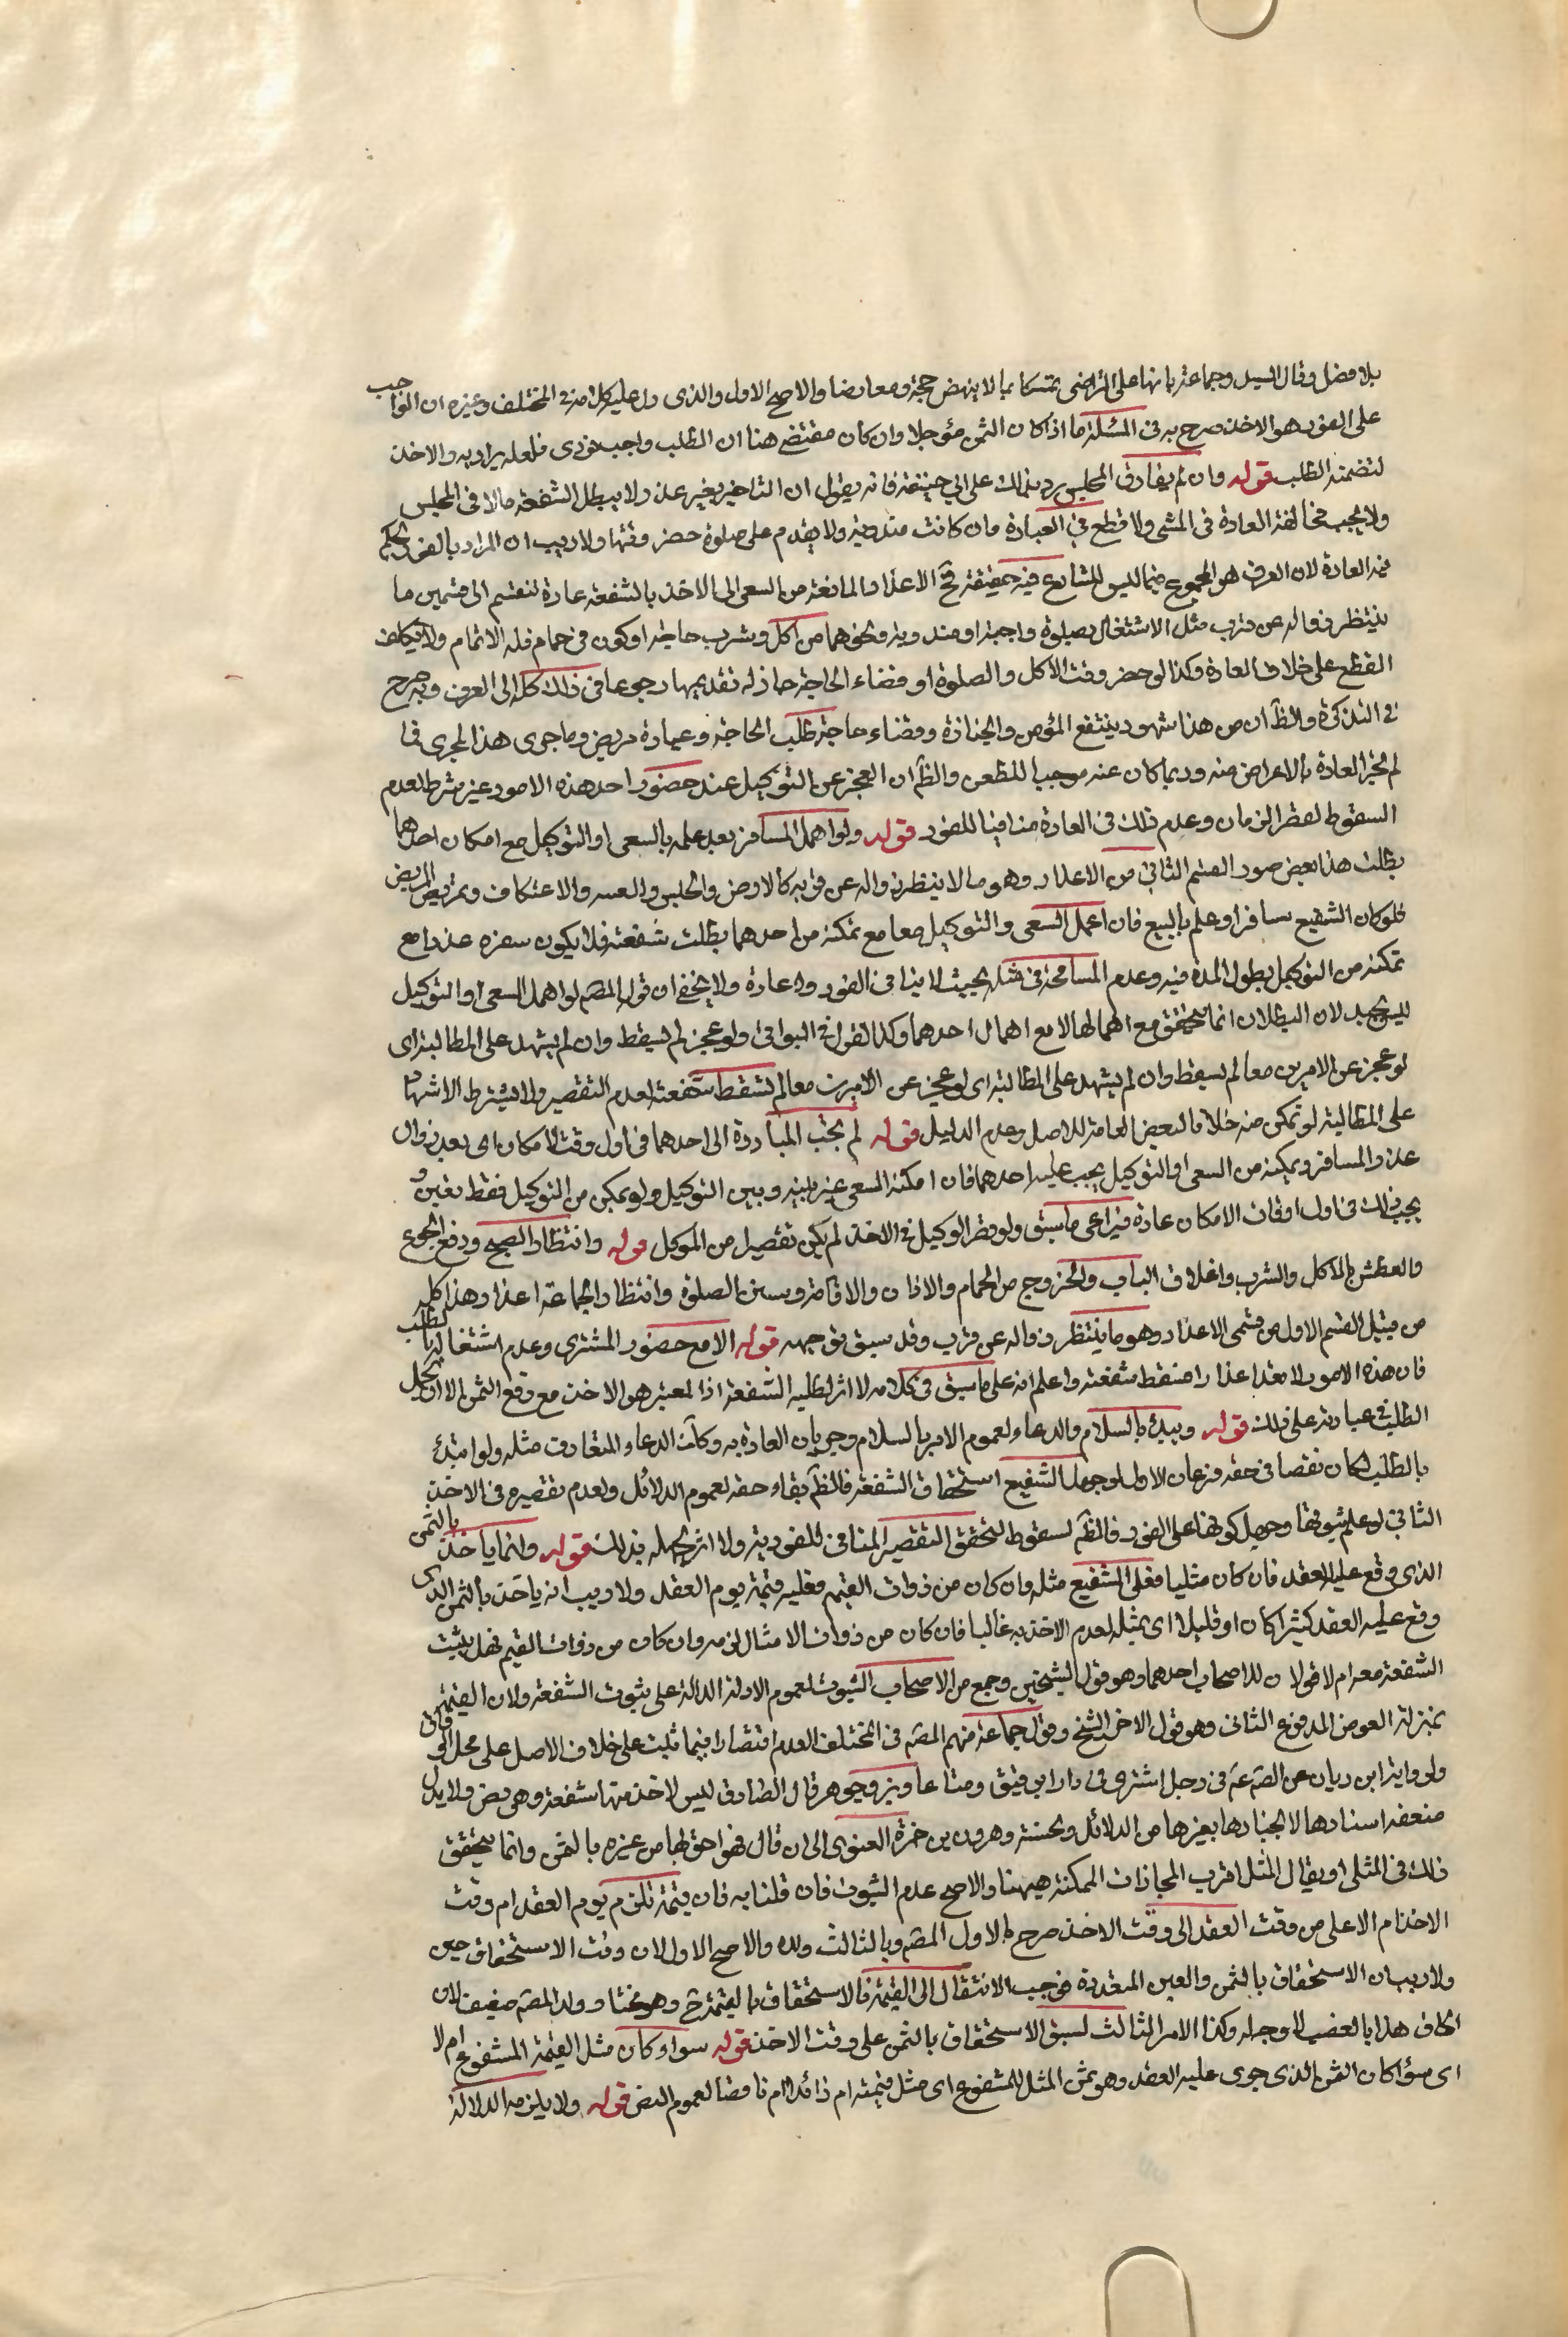 بلا فصل وقال السيد وجماعة بانها على التراخي تمسكا بما لا ينهض حجة ومعارضا والاصح الاول والذي دل عليه كلامه في المختلف وغيره ان الواجب
على الفور هو الاخذ صرح به في المسئلة ما اذا كان الثمن مؤجلا وان كان مقتضى هنا ان الطلب واجب فوري فلعله يراد به والاخذ
لتضمنه الطلب قوله وان لم يفارق المجلس رد بذلك على ابي حنيفة فانه يقول ان التاخير بغير عذر لا يبطل الشفعة مالا في المجلس
ولا يجب مخالفة العادة في المشي ولا قطع في العبادة وان كانت مندوبة ولا يقدم على صلوة حضر وقتها ولا ريب ان المراد بالفور يحكم
فيه العادة لان العرف هو المرجوع فيما ليس للشارع فيه حقيقة فح الاعذار المانعة من السعي الى الاخذ بالشفعة عادة تنقسم الى قسمين ما
ينتظر زواله عن قرب مثل الاشتغال بصلوة واجبة او مندوبة ونحوهما من اكل وشرب حاجة او كون في حمام فله الاتمام ولا يكلف
القطع على خلاف العادة وكذا لو حضر وقت الاكل والصلوة او قضاء الحاجة جاز له تقديمها رجوعا في ذلك كله الى العرف وبه صرح
في التذكرة والظ ان من هذا شهود ينتفع المؤمن والجنازة وقضاء حاجة طلب الحاجة وعيادة مريض وما جرى هذا المجرى فا
لم تجر العادة بالاعراض منه وربما كان عنه موجبا للطعن والظ ان العجز عن التوكيل عند حضور احد هذه الامور غير شرط لعدم
السقوط لقصر الزمان وعدم ذلك في العادة منافيا للفور قوله ولو اهمل المسافر بعد علمه بالسعي او التوكيل مع امكان احدهما
بطلت هذا بعض صور القسم الثاني من الاعذار وهو ما لا ينتظر زواله عن قرب كالمرض والحبس والسفر والاعتكاف وتمريض المريض
فلو كان الشفيع مسافرا وعلم بالبيع فان اهمل السعي والتوكيل معا مع تمكنه من احدهما بطلت شفعته فلا يكون سفره عذرا مع
تمكنه من التوكيل بطول المدة فيه وعدم المسامحة في مثله بحيث لا ينافي الفور وا عادة ولا يخفى ان قول المصر لو اهمل السعي او التوكيل
ليس بجيد لان البطلان انما يتحقق مع اهمالها لا مع اهمال احدهما وكذا القول في البواقي ولو عجز لم يسقط وان لم يشهد على المطالبة اي
لو عجز عن الامرين معا لم يسقط وان لم يشهد على المطالبة اي لو عجز عن الامرين معا لم تسقط شفعته لعدم التقصير ولا يشترط الاشهاد
على المطالبة لو تمكن منه خلافا لبعض العامة للاصل وعدم الدليل قوله لم يجب المبادرة الى احدهما في اول وقت الامكان اي بعد زوال
عذر المسافر وتمكنه من السعي او التوكيل يجب عليه احدهما فان امكنه السعي عنه بينه وبين التوكيل ولو تمكن من التوكيل فقط تعين و
يجب ذلك في اول اوقات الامكان عادة فيراعى ما سبق ولو قصر الوكيل في الاخذ لم يكن تقصيرا من الموكل قوله وانتظار الصبح ودفع الجوع
والعطش بالاكل والشرب واغلاق الباب والخروج من الحمام والاذان والاقامة وسنن الصلوة وانتظار الجماعة اعذار وهذا كله
من قبيل القسم الاول من قسمي الاعذار وهو ما ينتظر زواله عن قرب وقد سبق توجيهه قوله الا مع حضور المشتري وعدم اشتغاله بالطلب
فان هذه الامور لا تعد اعذارا فتسقط شفعته واعلم انه على ما سبق في كلامه لا اثر لطلب الشفعة اذ المعتبر هو الاخذ مع دفع الثمن الا ان يحمل
الطلب في عبارته على ذلك قوله ويبدء بالسلام والدعاء لعموم الامر بالسلام وجريان العادة به وكذا الدعاء المتعارف مثله ولو ابتدئ
بالطلب لكان نقصا في حقه فرعان الاول لو جهل الشفيع استحقاق الشفعة فالظ بقاء حقه لعموم الدلائل ولعدم تقصيره في الاخذ
الثاني لو علم ثبوتها وجهل كونها على الفور فالظ السقوط لتحقق التقصير المنافي للفورية ولا اثر لجهله بذلك قوله وانما ياخذ بالثمن
الذي وقع عليه العقد فان كان مثليا فعلى الشفيع مثله وان كان من ذوات القيم فعليه قيمته يوم العقد ولا ريب انه ياخذ بالثمن الذي
وقع عليه العقد كثيرا كان او قليلا اي بمثله لعدم الاخذ به غالبا فان كان من ذوات الامثال لزمه وان كان من ذوات القيم فهل يثبت
الشفعة معه ام لا قولان للاصحاب احدهما وهو قول الشيخين وجمع من الاصحاب الثبوت لعموم الادلة الدالة على ثبوت الشفعة ولان القيمة
بمنزلة العوض المدفوع الثاني وهو قول الاخر للشيخ وقول جماعة منهم المصر في المختلف العدم اقتصارا فيما ثبت على خلاف الاصل على محل الوفاق
ولرواية ابن رباب عن الصر ع في رجل اشترى دارا برقيق ومتاع وبز وجوهر قال الصادق ليس لاحد فيها شفعة وهي نص ولا يدل
ضعف اسنادها لانجبارها بغيرها من الدلائل ولحسنة وهرون بن حمزة الغنوي الى ان قال فهو احق بها من غيره بالثمن وانما يتحقق
ذلك في المثلي او يقال المثل اقرب المجازات الممكنة هيهنا والاصح عدم الثبوت فان قلنا به فان قيمة تلزم يوم العقد ام وقت
الاخذ ام الاعلى من وقت العقد الى وقت الاخذ صرح بالاول المصر وبالثالث ولده والاصح الاول لان وقت الاستحقاق حين
ولا ريب ان الاستحقاق بالثمن والعين المتعذرة فوجب الانتقال الى القيمة فالاستحقاق بالقيمة ح وهو مختار ولد المصر ضعيف لان
الحاق هذا بالغصب لا وجه له وكذا الامر الثالث لسبق الاستحقاق بالثمن على وقت الاخذ قوله سواء كان مثل القيمة المشفوع ام لا
اي سواء كان الثمن الذي جرى عليه العقد وهو ثمن المثل للمشفوع اي مثل قيمته ام زائدا ام ناقصا لعموم النص قوله ولا يلزمه الدلالة